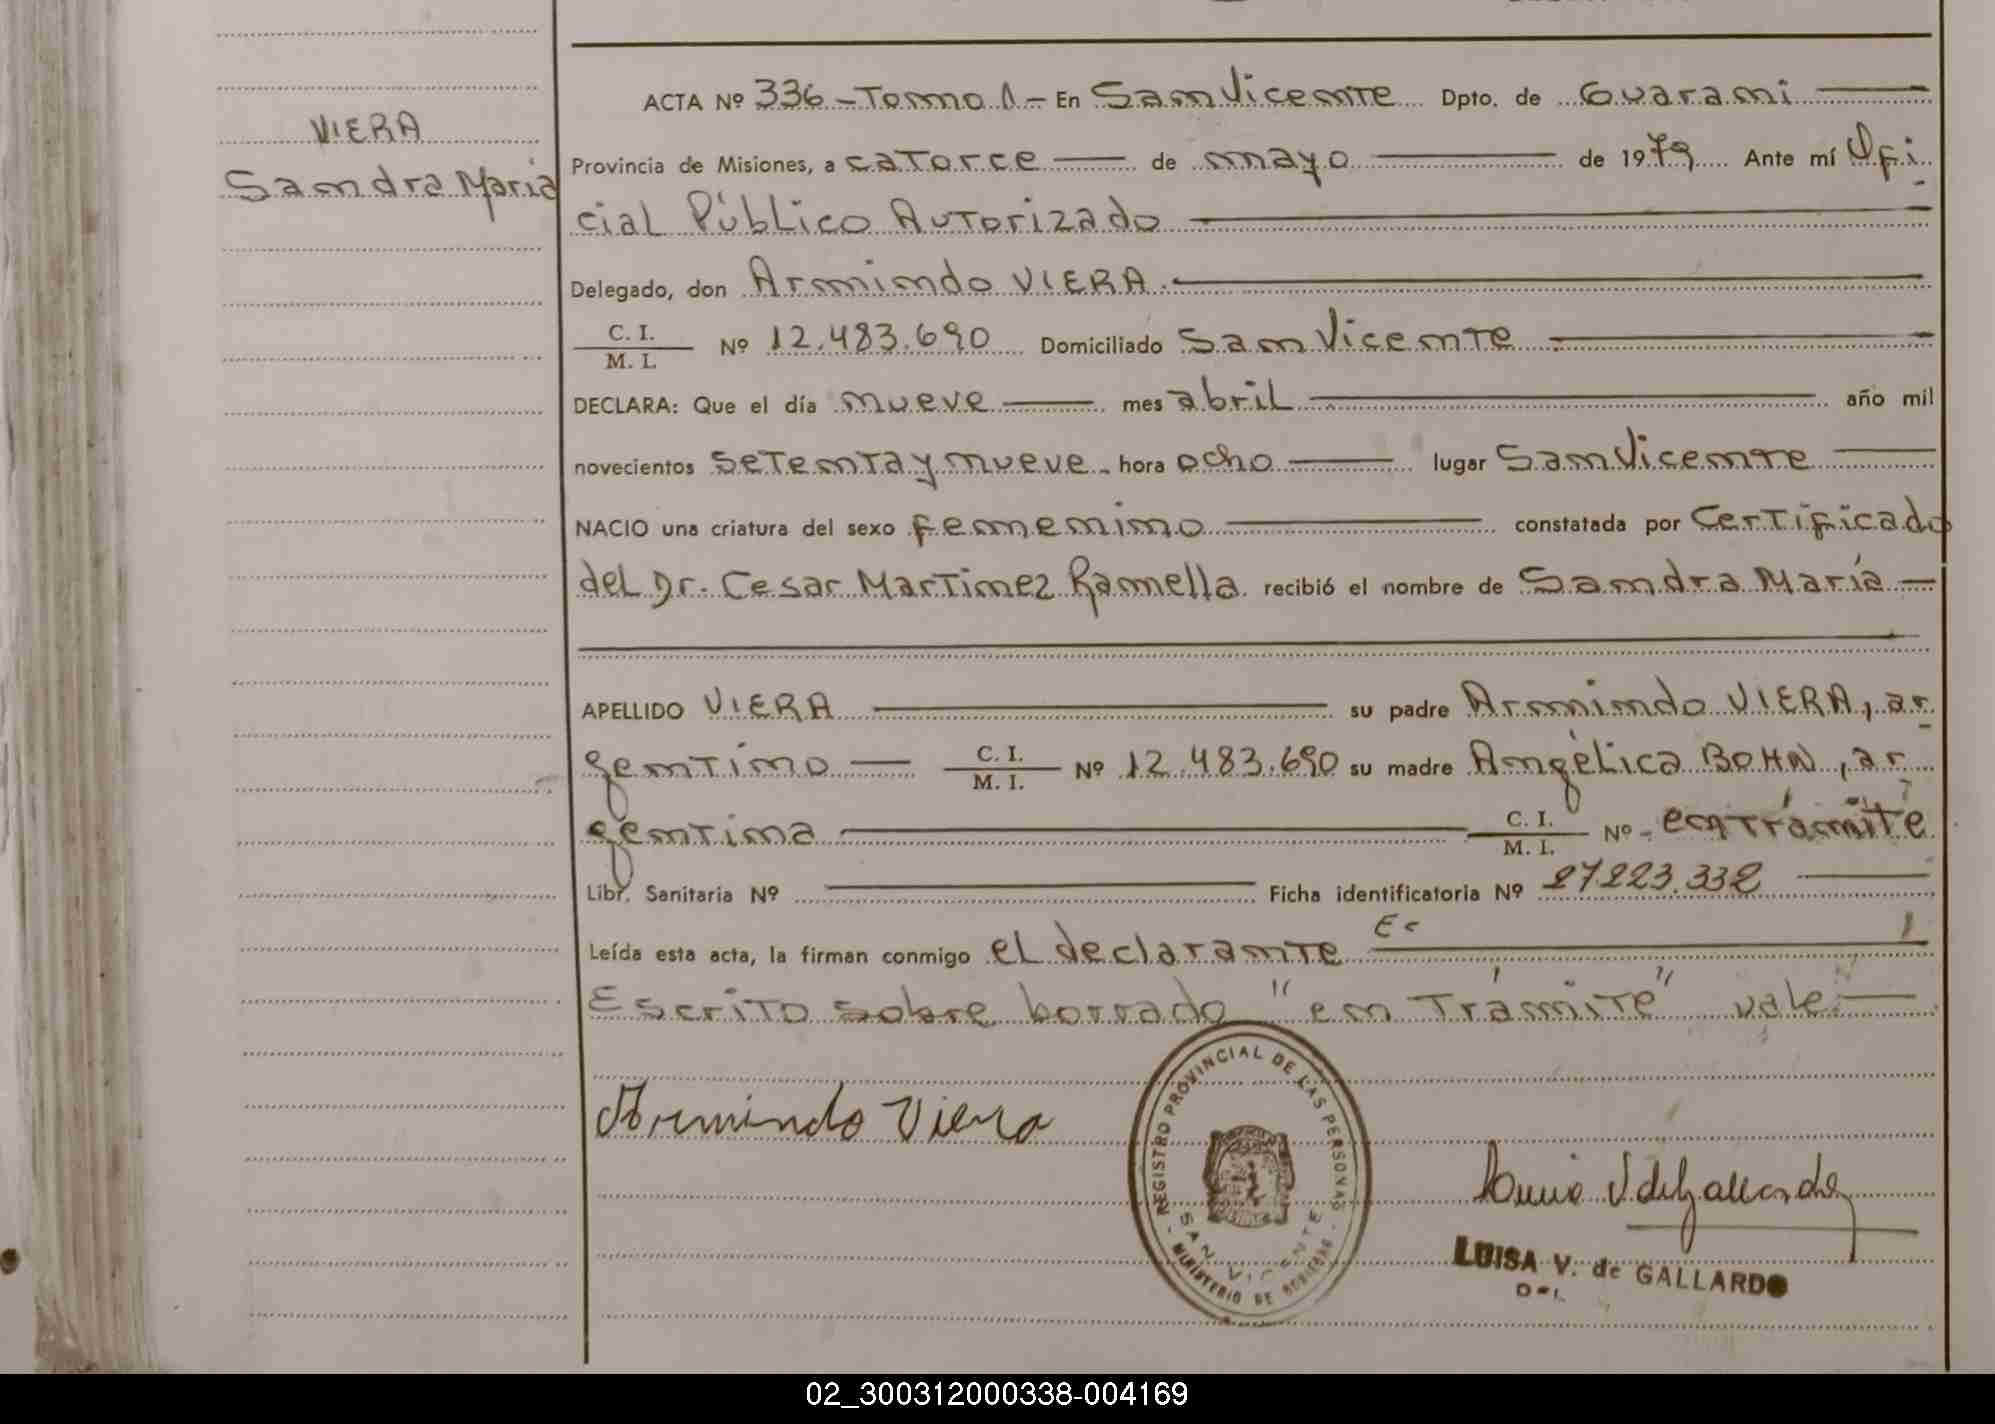 VIERA
Sandra María
ACTA Nº 336 - Tomo 1 - En San Vicente Dpto. de Guaraní
Provincia de Misiones, a catorce de mayo de 1979 Ante mí Ofi
cial Público Autorizado
Delegado, don Armindo VIERA.
C. I.
M. I. Nº 12.483.690 Domiciliado San Vicente
DECLARA: Que el día nueve mes abril año mil
novecientos setenta y nueve. hora ocho lugar San Vicente
NACIO una criatura del sexo femenino constatada por Certificado
del Dr. Cesar Martinez Ramella recibió el nombre de Sandra María
APELLIDO VIERA su padre Armindo VIERA, ar
gentino C. I.
M. I. Nº 12.483.690 su madre Angélica BOHN, ar
gentina C. I.
M. I. Nº en trámite
Libr. Sanitaria Nº Ficha identificatoria Nº 27.223.332
Leída esta acta, la firman conmigo el declarante
Escrito sobre borrado "en trámite" vale
Armindo Viera
REGISTRO PROVINCIAL DE LAS PERSONAS
SAN VICENTE
MINISTERIO DE GOBIERNO
Luisa V de Gallardo
LUISA V. de GALLARDO
02_300312000338-004169